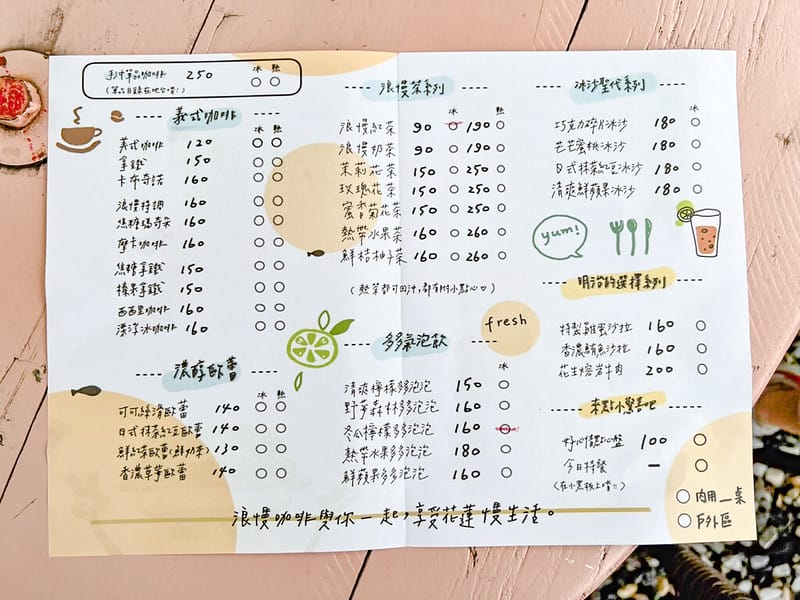 手沖單品咖啡 250 冰 熱
(單品目錄在吧台唷!)
義式咖啡
冰 熱
美式咖啡 120
拿鐵 150
卡布奇諾 160
浪慢特調 160
焦糖瑪奇朵 160
摩卡咖啡 160
焦糖拿鐵 150
榛果拿鐵 150
西西里咖啡 160
漂浮冰咖啡 160
濃醇歐蕾
冰 熱
可可絲滑歐蕾 140
日式抹茶紅豆歐蕾 140
鮮紅茶歐蕾(鮮奶茶) 130
香濃草芋歐蕾 140
浪慢茶系列
冰 熱
浪慢紅茶 90 190
浪慢奶茶 90 190
茉莉花茶 150 250
玫瑰花茶 150 250
蜜香菊花茶 150 250
熱帶水果茶 160 260
鮮桔柚子茶 160 260
(熱茶都可回沖,都有附小點心♡)
fresh
多多氣泡飲
冰
清爽檸檬多泡泡 150
野莓森林多泡泡 160
冬瓜檸檬多泡泡 160
熱帶水果多泡泡 180
鮮蘋果多多泡泡 160
冰沙聖代系列
冰
巧克力碎片冰沙 180
芒芒蜜桃冰沙 180
日式抹茶紅豆冰沙 180
清爽鮮蘋果冰沙 180
yum!
明治的選擇系列
特製雞蛋沙拉 160
香濃鮪魚沙拉 160
花生熔岩牛肉 200
來點小驚喜吧
好心情點心盤 100
今日特餐 —
(在小黑板上唷!!)
內用__桌
戶外區
浪慢咖啡與你一起,享受花蓮慢生活。